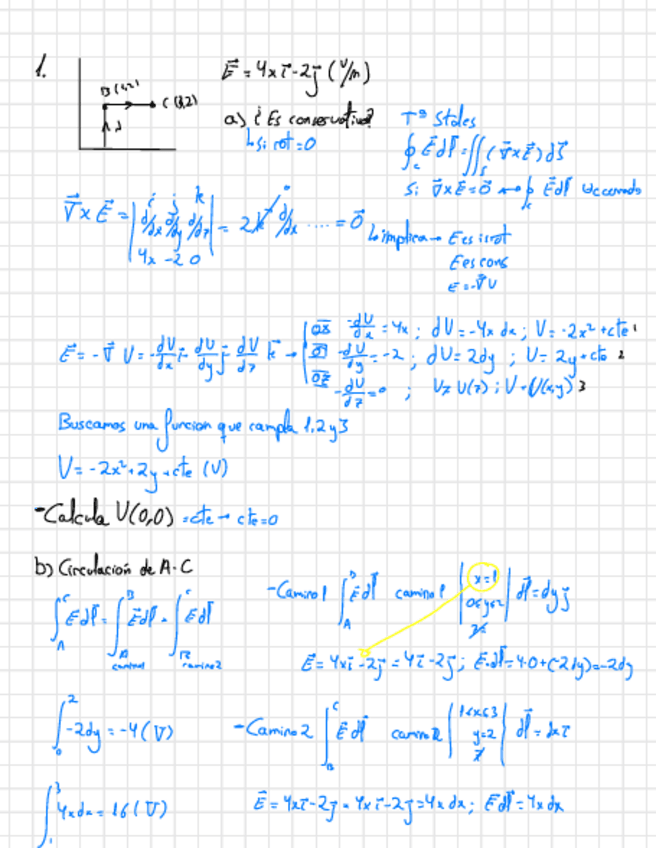 1.
B(1,2)
C (3,2)
E⃗ = 4x i⃗ - 2 j⃗ (V/m)
a) ¿Es conservativo?
↳ si rot = 0
Tª Stokes
∮_c E⃗ dl⃗ = ∬_S (∇⃗xE⃗) dS⃗
Si ∇⃗xE⃗ = 0⃗ ↔ ∮_c E⃗dl⃗
∇⃗ x E⃗ = | i j k | d/dx d/dy d/dz | 4x -2 0 | = 2k⃗ d/dx .... = 0⃗
↳ implica → E es irrot
E es cons
E = -∇⃗U
E⃗ = -∇⃗ U = -dU/dx i⃗ - dU/dy j⃗ - dU/dz k⃗ →
OX -dU/dx = 4x ; dU = -4x dx ; U = -2x² + cte 1
OY -dU/dy = -2 ; dU = 2dy ; U = 2y + cte 2
OZ -dU/dz = 0 ; U ≠ U(z) ; U = U(x,y) 3
Buscamos una funcion que cumpla 1, 2 y 3
U = -2x² + 2y + cte (V)
- Calcula U(0,0) = cte → cte = 0
b) Circulación de A-C
∫_A^C E dl⃗ = ∫_A^B E⃗ dl⃗ + ∫_B^C E dl⃗
camino1 camino2
- Camino 1 ∫_A^B E⃗ dl⃗ camino 1 | x=1 | 0≤y≤2 | z | dl⃗ = dy j⃗
E⃗ = 4x i⃗ - 2 j⃗ = 4 i⃗ - 2 j⃗ ; E⃗·dl⃗ = 4·0 + (-2dy) = -2dy
∫_0^2 -2dy = -4 (V)
- Camino 2 ∫_B^C E⃗ dl⃗ camino 2 | 1≤x≤3 | y=2 | z | dl⃗ = dx i⃗
∫_1^3 4x dx = 16 (V)
E⃗ = 4x i⃗ - 2 j⃗ = 4x i⃗ - 2 j⃗ = 4x dx ; E dl⃗ = 4x dx